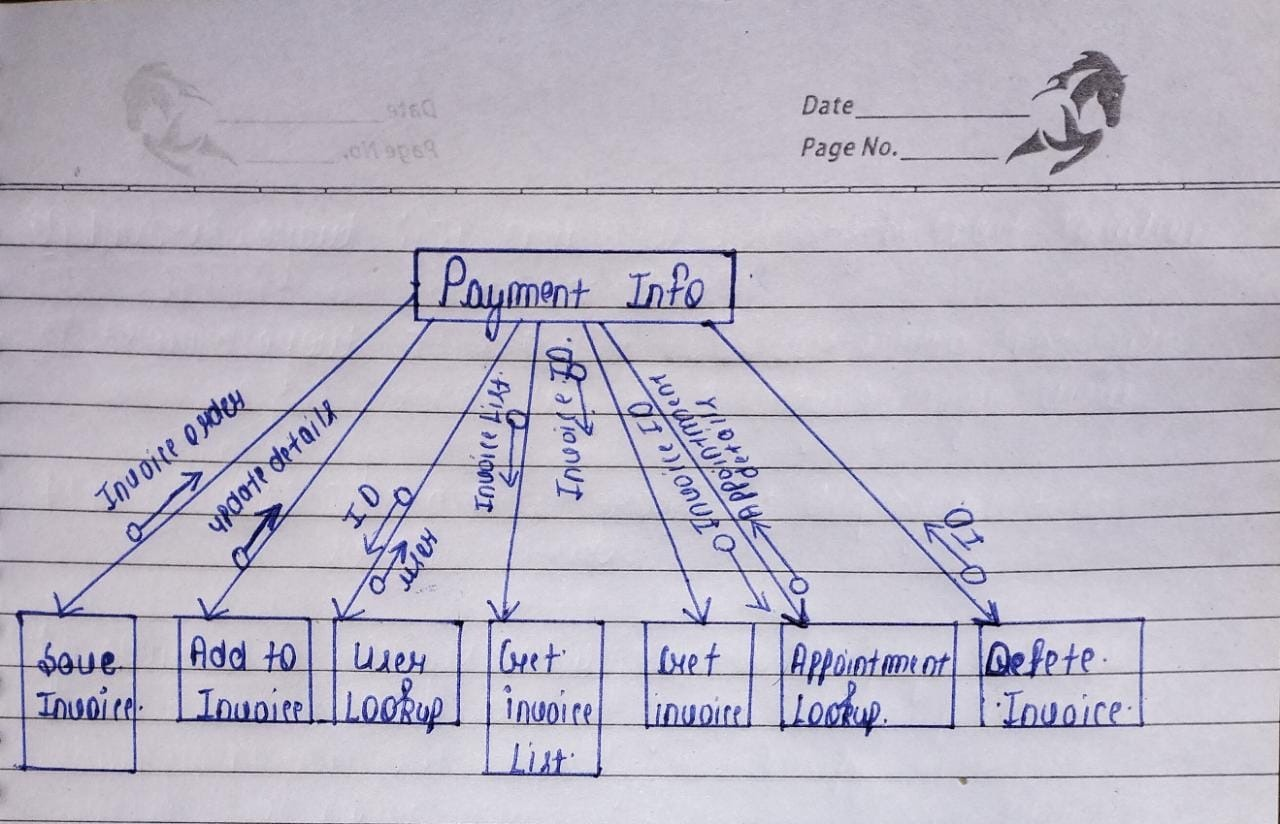 Date
Page No.
Payment Info
Invoice order
update details
ID
user
Invoice List.
Invoice ID.
Invoice ID
Appointment
details
ID
Save
Invoice.
Add to
Invoice
User
Lookup
Get
invoice
List.
Get
invoice
Appointment
Lookup.
Delete.
Invoice.